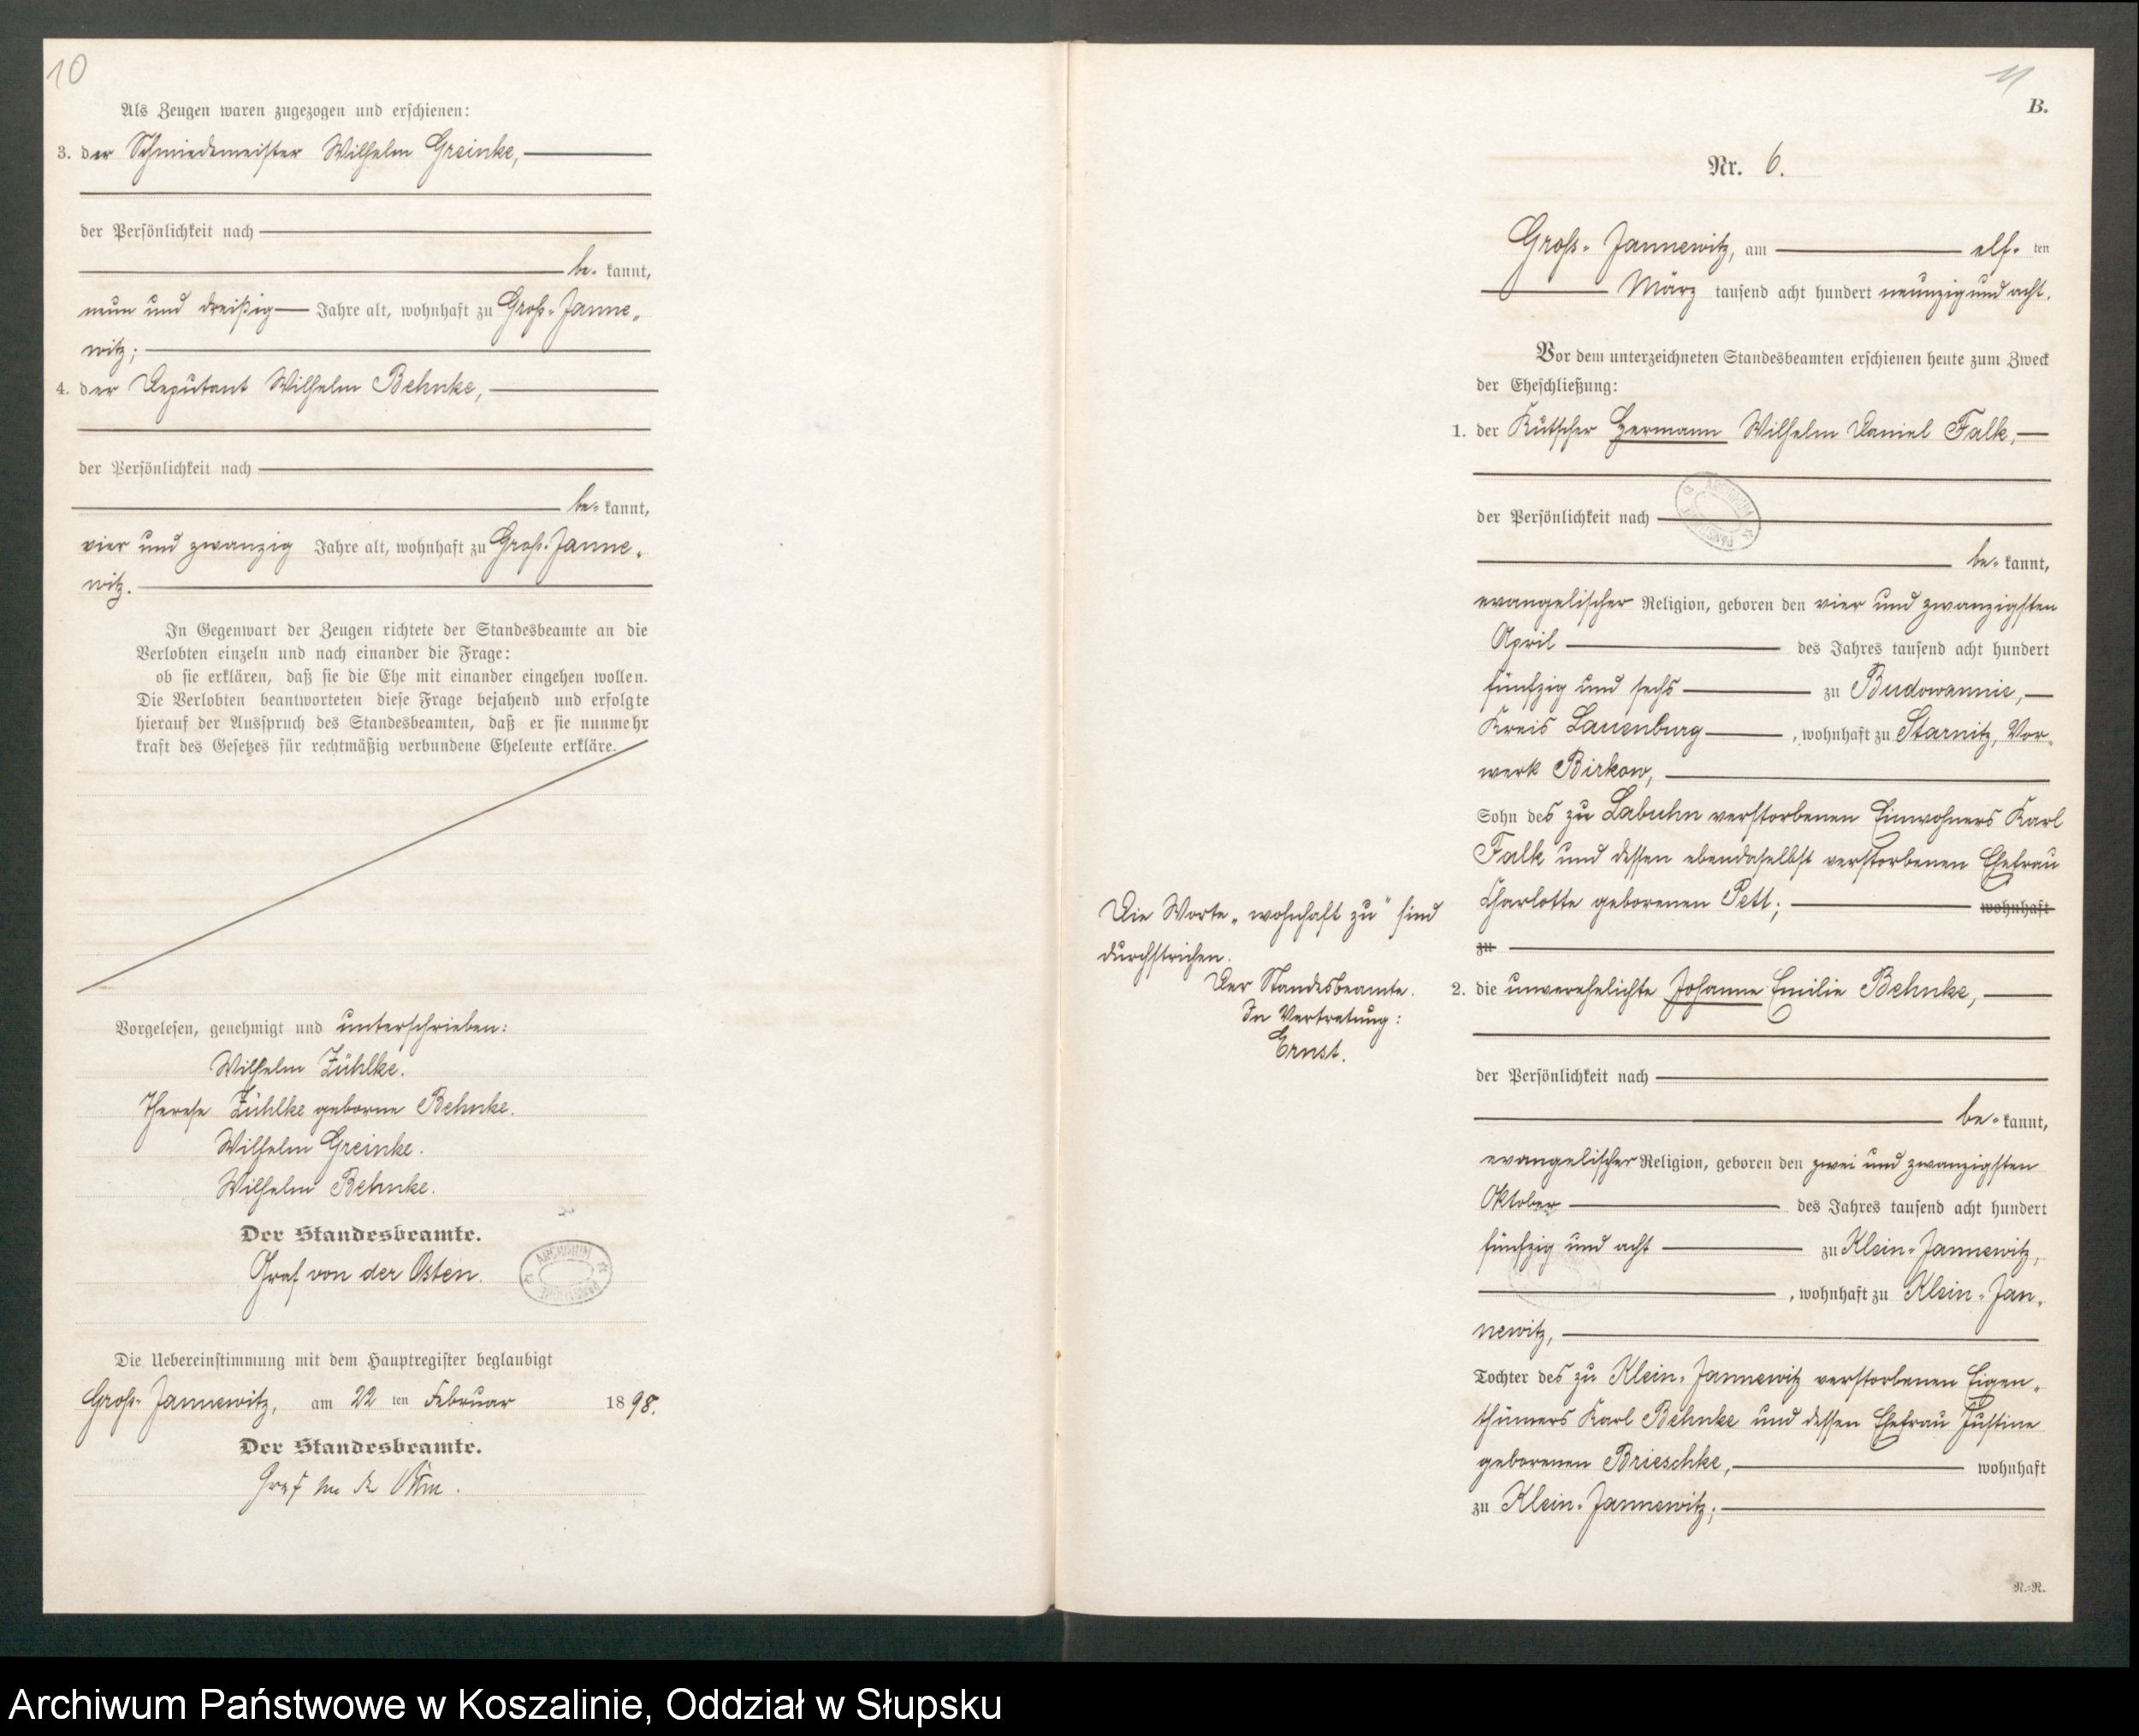 10
Als Zeugen waren zugezogen und erschienen:
3. der Schmiedemeister Wilhelm Greinke,
der Persönlichkeit nach
be- kannt,
neun und dreißig Jahre alt, wohnhaft zu Groß-Janne-
witz;
4. der Deputant Wilhelm Behnke,
der Persönlichkeit nach
be- kannt,
vier und zwanzig Jahre alt, wohnhaft zu Groß-Janne-
witz.
In Gegenwart der Zeugen richtete der Standesbeamte an die
Verlobten einzeln und nach einander die Frage:
ob sie erklären, daß sie die Ehe mit einander eingehen wollen.
Die Verlobten beantworteten diese Frage bejahend und erfolgte
hierauf der Ausspruch des Standesbeamten, daß er sie nunmehr
kraft des Gesetzes für rechtmäßig verbundene Eheleute erkläre.
Vorgelesen, genehmigt und unterschrieben:
Wilhelm Zühlke.
Therese Zühlke geborne Behnke.
Wilhelm Greinke.
Wilhelm Behnke.
Der Standesbeamte.
Graf von der Osten.
ARCHIWUM PAŃSTWOWE
Die Uebereinstimmung mit dem Hauptregister beglaubigt
Groß-Jannewitz, am 22 ten Februar 1898.
Der Standesbeamte.
Graf
11
B.
Nr. 6.
Groß-Jannewitz, am elf- ten
März tausend acht hundert neunzig und acht.
Vor dem unterzeichneten Standesbeamten erschienen heute zum Zweck
der Eheschließung:
1. der Kutscher Hermann Wilhelm Daniel Falk,
der Persönlichkeit nach
ARCHIWUM PAŃSTWOWE
be- kannt,
evangelischer Religion, geboren den vier und zwanzigsten
April des Jahres tausend acht hundert
fünfzig und sechs zu Budowannie,
Kreis Lauenburg, wohnhaft zu Starnitz, Vor-
werk Birkow,
Sohn des zu Labuhn verstorbenen Einwohners Karl
Falk und dessen ebendaselbst verstorbenen Ehefrau
Charlotte geborenen Pett; wohnhaft
zu
Die Worte „wohnhaft zu" sind
durchstrichen.
Der Standesbeamte.
In Vertretung:
Ernst.
2. die unverehelichte Johanne Emilie Behnke,
der Persönlichkeit nach
be- kannt,
evangelischer Religion, geboren den zwei und zwanzigsten
Oktober des Jahres tausend acht hundert
fünfzig und acht zu Klein-Jannewitz,
, wohnhaft zu Klein-Jan-
newitz,
Tochter des zu Klein-Jannewitz verstorbenen Eigen-
thümers Karl Behnke und dessen Ehefrau Justine
geborenen Brieschke, wohnhaft
zu Klein-Jannewitz;
R.-R.
Archiwum Państwowe w Koszalinie, Oddział w Słupsku